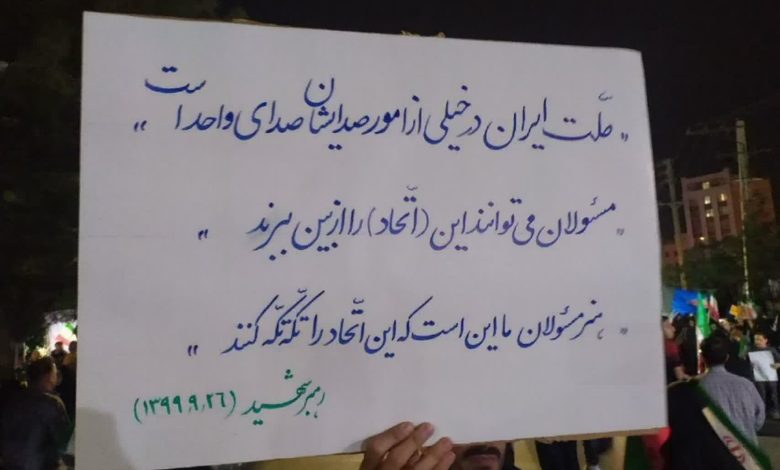 „ ملّت ایران در خیلی از امور صدایشان صدای واحد است „
„ مسئولان می توانند این (اتّحاد) را از بین ببرند „
„ هنر مسئولان ما این است که این اتّحاد را تکّه تکّه کنند „
رهبر شهید (۱۳۹۹,۹,۲۶)